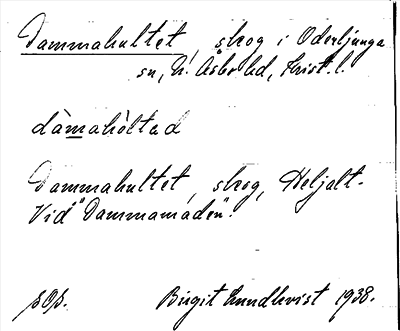 Dammahultet, skog i Oderljunga
sn, N. Åsbo hd, Krist. l.
dàmahòltad
Dammahultet, skog, Heljalt.
Vid "Dammamaden".
Birgit Lundkvist 1938.